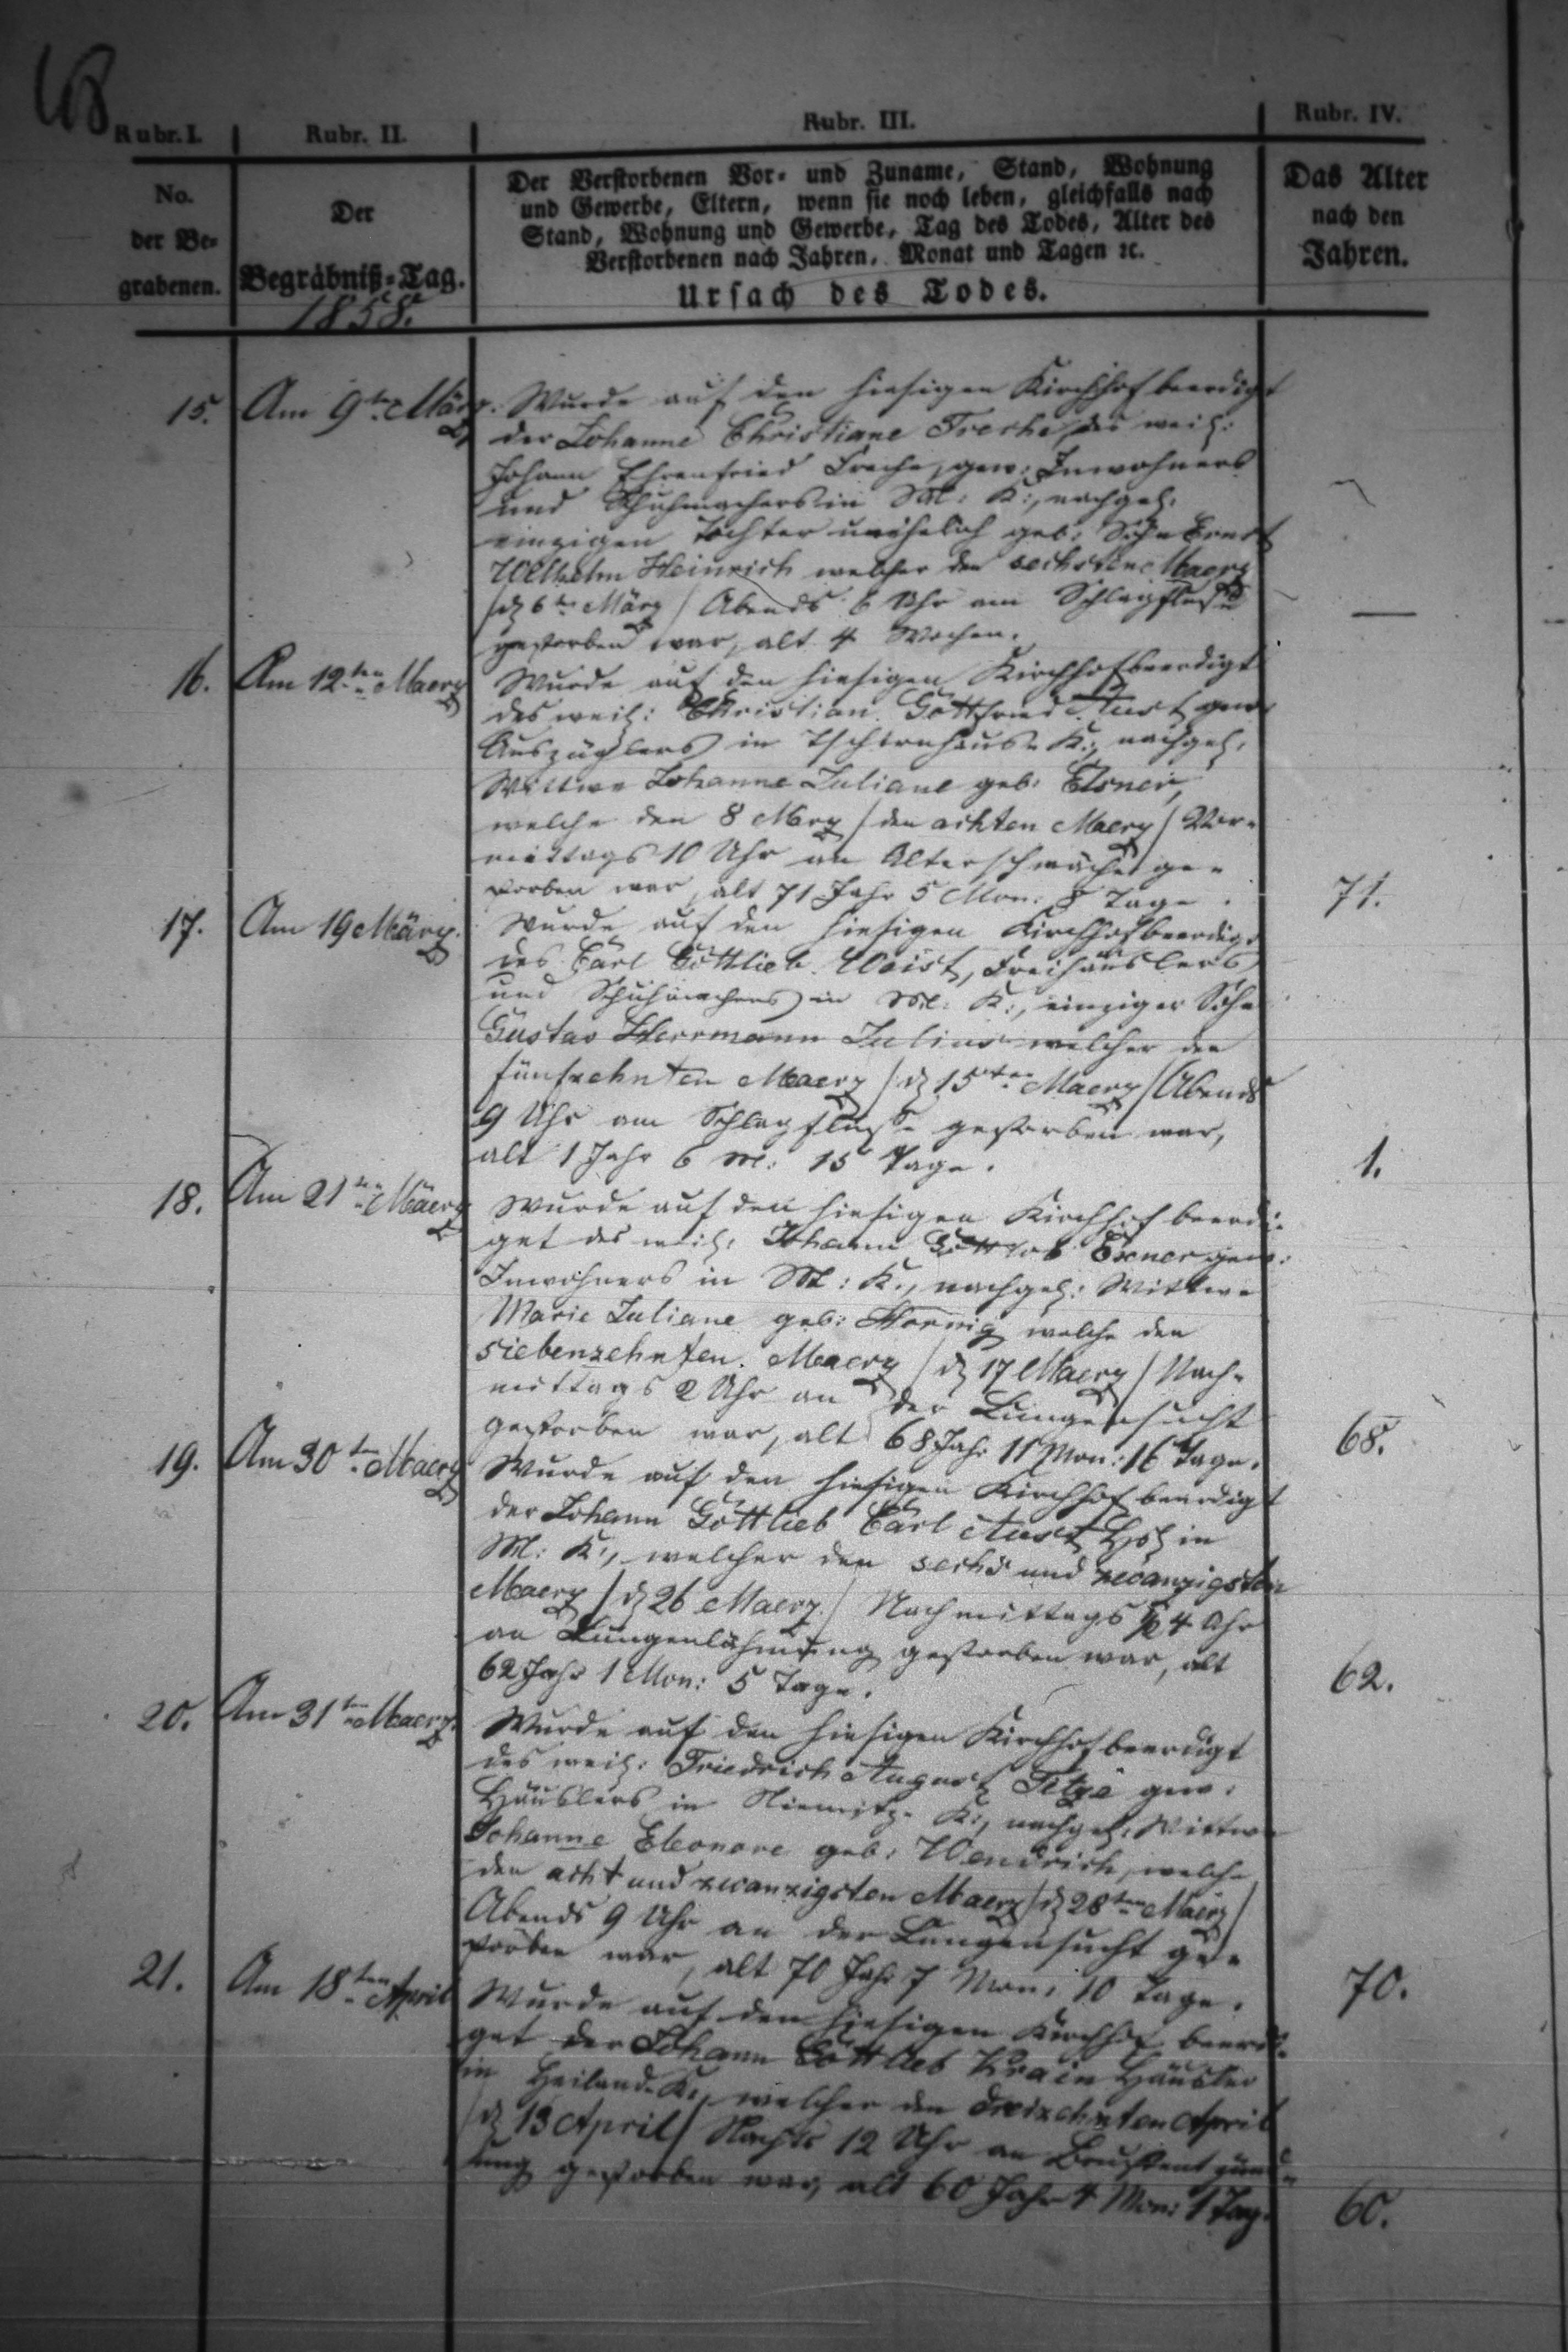 Rubr. I.
Rubr. II.
Rubr. III.
Rubr. IV.
No.
der Be-
grabenen.
Der
Begräbniß-Tag.
1858.
Der Verstorbenen Vor- und Zuname, Stand, Wohnung
und Gewerbe, Eltern, wenn sie noch leben, gleichfalls nach
Stand, Wohnung und Gewerbe, Tag des Todes, Alter des
Verstorbenen nach Jahren, Monat und Tagen ꝛc.
Ursach des Todes.
Das Alter
nach den
Jahren.
15. Am 9ten März. Wurde auf den hiesigen Kirchhof beerdigt
der Johanne Christiane Tresche, des weil:
Johann Ehrenfried Tresche, gew: Inwohners
und Schuhmachers in M: K:, nachgel:
einzigen Tochter unehelich geb: Sohn Ernst
Wilhelm Heinrich welcher den sechsten Maerz
/d 6ten März/ Abends 6 Uhr am Schlagflusse
gestorben war, alt 4 Wochen. —
16. Am 12ten Maerz Wurde auf den hiesigen Kirchhof beerdigt
des weil: Christian Gottfried Aust gew:
Auszüglers in Tschirnhaus-K:, nachgel:
Wittwe Johanne Juliane geb: Elsner,
welche den 8 Merz /den achten Maerz/ Vor-
mittags 10 Uhr an Altersschwäche ge-
storben war, alt 71 Jahr 5 Mon: 8 Tage. 71.
17. Am 19 März. Wurde auf den hiesigen Kirchhof beerdigt
des Carl Gottlieb Weist, Freihäuslers
und Schuhmachers in M: K:, einziger Sohn
Gustav Herrmann Julius welcher den
fünfzehnten Maerz /d 15ten Maerz/ Abends
9 Uhr am Schlagflusse gestorben war,
alt 1 Jahr 6 M: 15 Tage. 1.
18. Am 21ten Maerz Wurde auf den hiesigen Kirchhof beerdi-
get des weil: Johann Gottlob Exner gew:
Inwohners in M: K:, nachgel: Wittwe
Marie Juliane geb: Hornig welche den
siebenzehnten Maerz /d 17 Maerz/ Nach-
mittags 2 Uhr an der Lungensucht
gestorben war, alt 68 Jahr 11 Mon: 16 Tage. 68.
19. Am 30ten Maerz Wurde auf den hiesigen Kirchhof beerdigt
der Johann Gottlieb Carl Aust in
M: K:, welcher den sechs und zwanzigsten
Maerz /d 26 Maerz/ Nachmittags ½ 4 Uhr
an Lungenlähmung gestorben war, alt
62 Jahr 1 Mon: 5 Tage. 62.
20. Am 31ten Maerz. Wurde auf den hiesigen Kirchhof beerdigt
des weil: Friedrich August Titze gew:
Häuslers in Niemitz-K:, nachgel: Wittwe
Johanne Eleonore geb: Wendrich, welche
den acht und zwanzigsten Maerz /d 28ten Maerz/
Abends 9 Uhr an der Lungensucht ge-
storben war, alt 70 Jahr 7 Mon: 10 Tage. 70.
21. Am 18ten April Wurde auf den hiesigen Kirchhof beerdi-
get der Johann Gottlieb Krain Häusler
in Heiland-K:, welcher den dreizehnten April
/d 13 April/ Nachts 12 Uhr an Brustentzünd-
ung gestorben war, alt 60 Jahr 4 Mon: 1 Tag. 60.